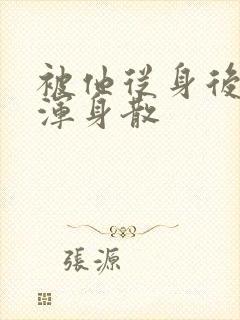 被他從身後
渾身散
張源